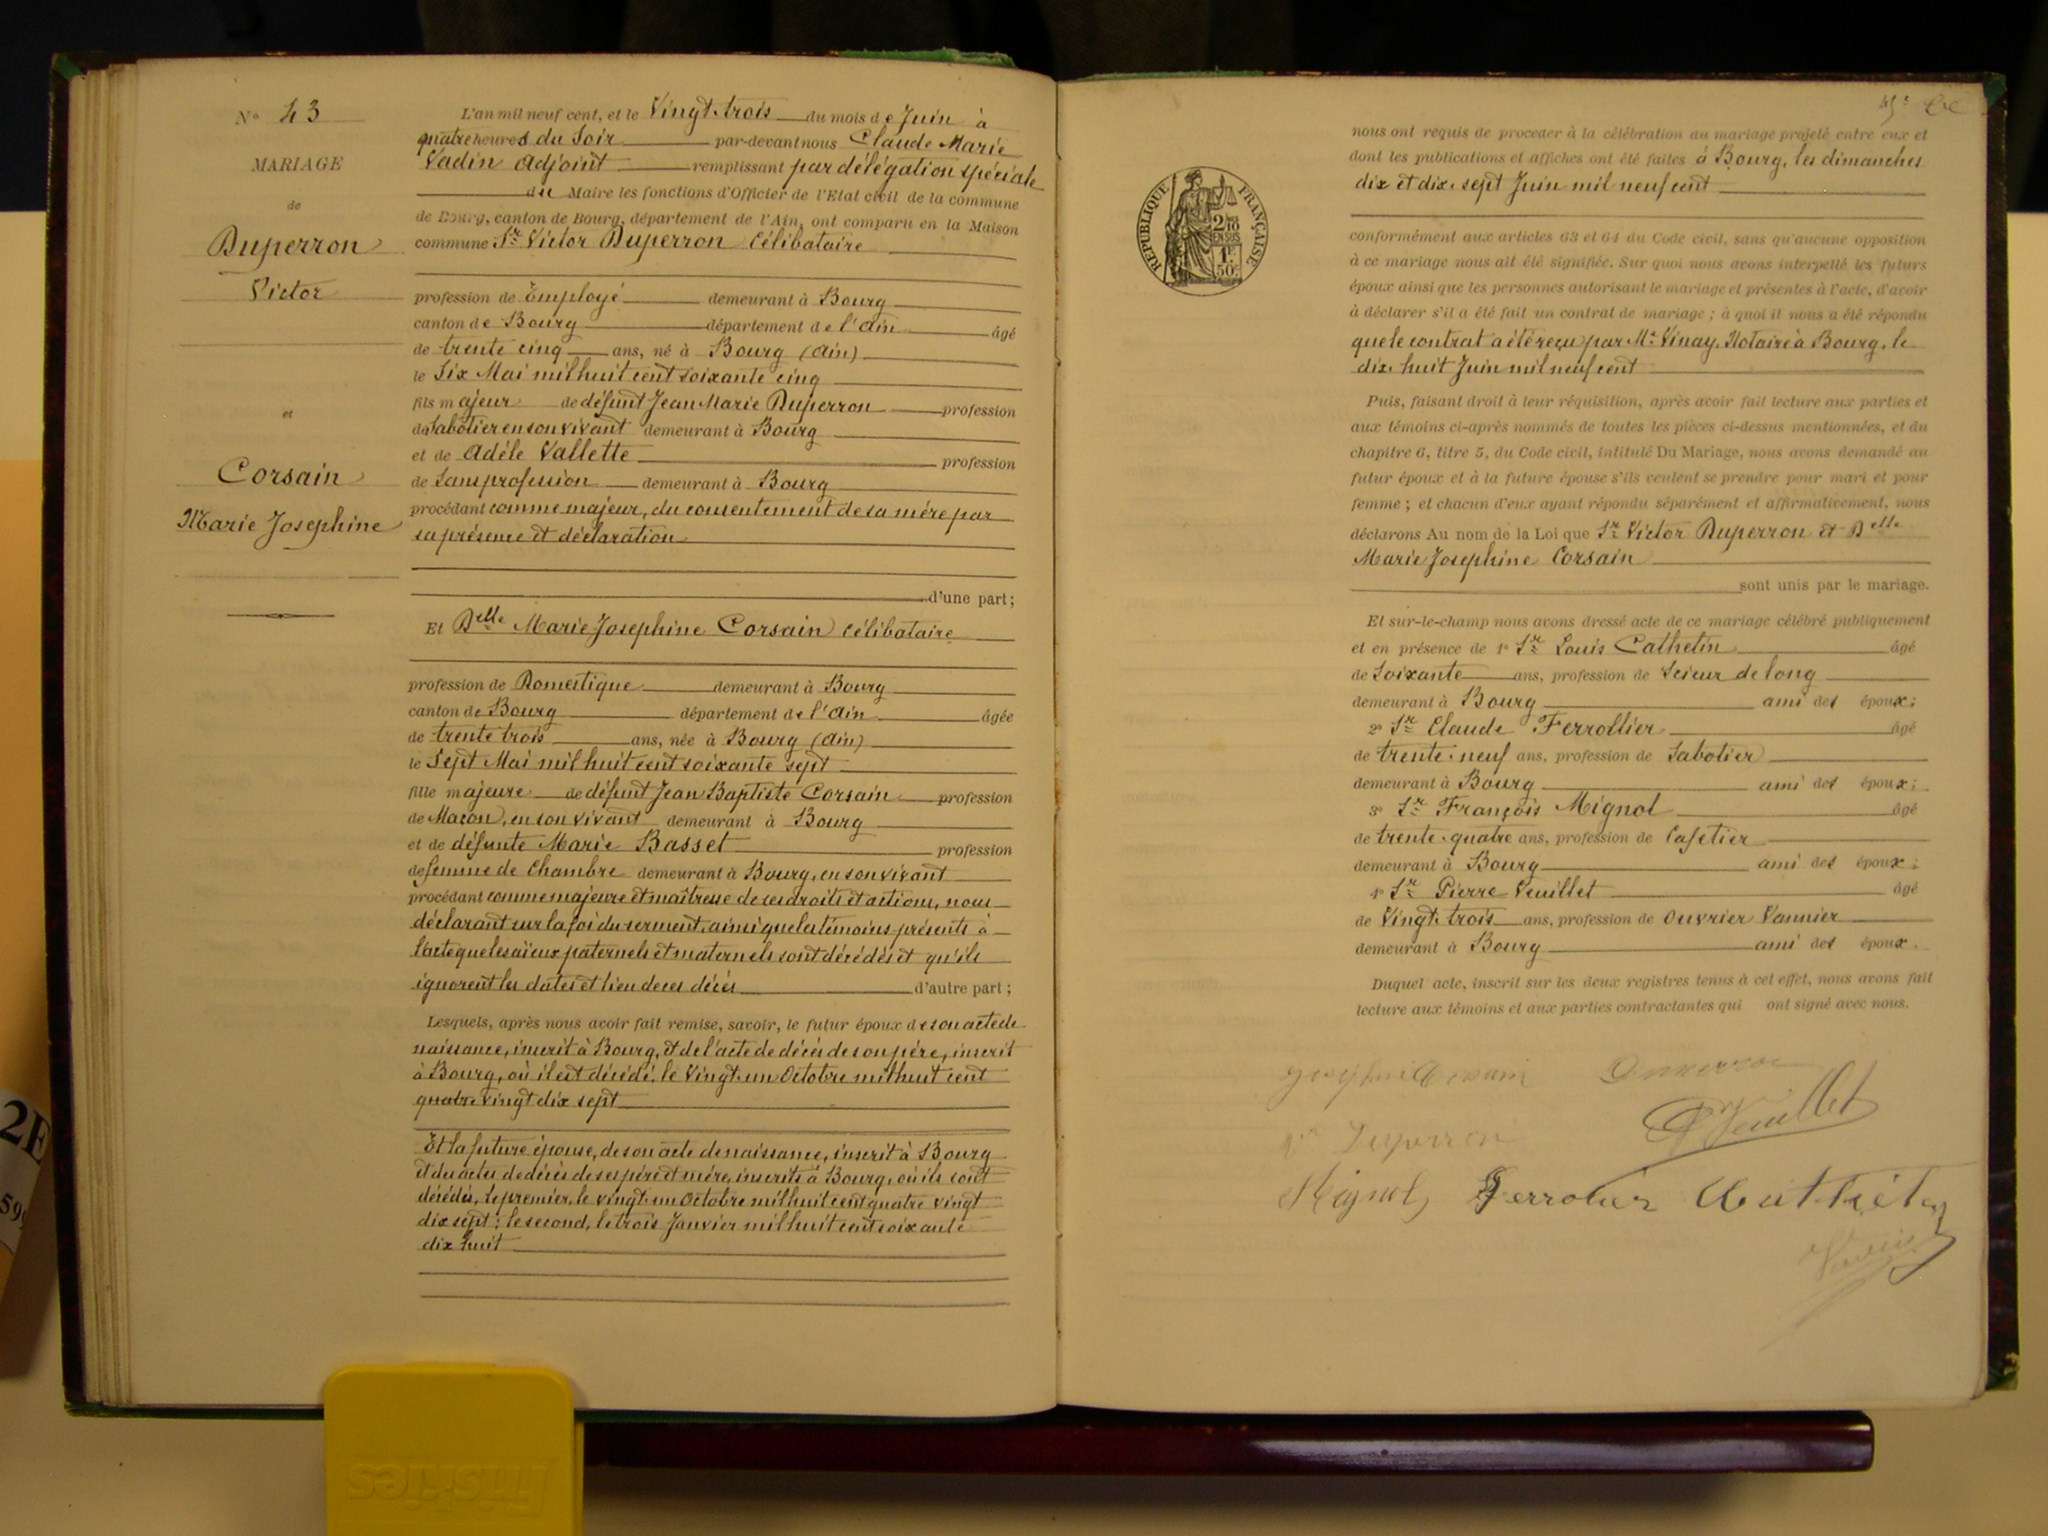 N° 43
MARIAGE
de
Duperron
Victor
et
Corsain
Marie Josephine
L'an mil neuf cent, et le Vingt-trois du mois de Juin à
quatre heures du Soir par-devant nous Claude Marie
Vadin Adjoint remplissant par délégation spéciale
du Maire les fonctions d'Officier de l'Etat civil de la commune
de Bourg, canton de Bourg, département de l'Ain, ont comparu en la Maison
commune Sr Victor Duperron Célibataire
profession de Employé demeurant à Bourg
canton de Bourg département de l'Ain âgé
de trente cinq ans, né à Bourg (Ain)
le Six Mai mil huit cent soixante cinq
fils majeur de défunt Jean Marie Duperron profession
de Sabotier en son vivant demeurant à Bourg
et de Adèle Vallette profession
de Sans profession demeurant à Bourg
procédant comme majeur, du consentement de sa mère par
sa présence et déclaration
d'une part;
Et Delle Marie Josephine Corsain Célibataire
profession de Domestique demeurant à Bourg
canton de Bourg département de l'Ain âgée
de trente trois ans, née à Bourg (Ain)
le Sept Mai mil huit cent soixante sept
fille majeure de défunt Jean Baptiste Corsain profession
de Maçon, en son vivant demeurant à Bourg
et de défunte Marie Basset profession
de femme de Chambre demeurant à Bourg, en son vivant
procédant comme majeure et maîtresse de ses droits et actions, nous
déclarant sur la foi du serment, ainsi que les témoins présents à
l'acte que les aïeux paternels et maternels sont décédés et qu'ils
ignorent les dates et lieu de ces décès d'autre part;
Lesquels, après nous avoir fait remise, savoir, le futur époux de son acte de
naissance, inscrit à Bourg, et de l'acte de décès de son père, inscrit
à Bourg, où il est décédé, le Vingt-un Octobre mil huit cent
quatre vingt dix sept
Et la future épouse, de son acte de naissance, inscrit à Bourg
et des actes de décès de ses père et mère, inscrits à Bourg, où ils sont
décédés, le premier, le vingt-un Octobre mil huit cent quatre vingt
dix sept; le second, le trois Janvier mil huit cent soixante
dix huit
RÉPUBLIQUE FRANÇAISE
2/10
EN SUS
1f
50c
nous ont requis de procéder à la célébration du mariage projeté entre eux et
dont les publications et affiches ont été faites à Bourg, les dimanches
dix et dix-sept Juin mil neuf cent
conformément aux articles 63 et 64 du Code civil, sans qu'aucune opposition
à ce mariage nous ait été signifiée. Sur quoi nous avons interpellé les futurs
époux ainsi que les personnes autorisant le mariage et présentes à l'acte, d'avoir
à déclarer s'il a été fait un contrat de mariage; à quoi il nous a été répondu
que le contrat a été reçu par Me Vinay, Notaire à Bourg, le
dix-huit Juin mil neuf cent
Puis, faisant droit à leur réquisition, après avoir fait lecture aux parties et
aux témoins ci-après nommés de toutes les pièces ci-dessus mentionnées, et du
chapitre 6, titre 5, du Code civil, intitulé Du Mariage, nous avons demandé au
futur époux et à la future épouse s'ils veulent se prendre pour mari et pour
femme; et chacun d'eux ayant répondu séparément et affirmativement, nous
déclarons Au nom de la Loi que Sr Victor Duperron et Delle
Marie Josephine Corsain
sont unis par le mariage.
Et sur-le-champ nous avons dressé acte de ce mariage célébré publiquement
et en présence de 1° Sr Louis Cathelin âgé
de Soixante ans, profession de Scieur de long
demeurant à Bourg ami des époux;
2° Sr Claude Ferrollier âgé
de trente-neuf ans, profession de Sabotier
demeurant à Bourg ami des époux;
3° Sr François Mignol âgé
de trente-quatre ans, profession de Cafetier
demeurant à Bourg ami des époux;
4° Sr Pierre Veuillet âgé
de Vingt-trois ans, profession de Ouvrier Vannier
demeurant à Bourg ami des époux.
Duquel acte, inscrit sur les deux registres tenus à cet effet, nous avons fait
lecture aux témoins et aux parties contractantes qui ont signé avec nous.
Josephine Corsain Duperron
Ve Duperron P Veuillet
Mignol Ferrolier
Vadin
2E
599